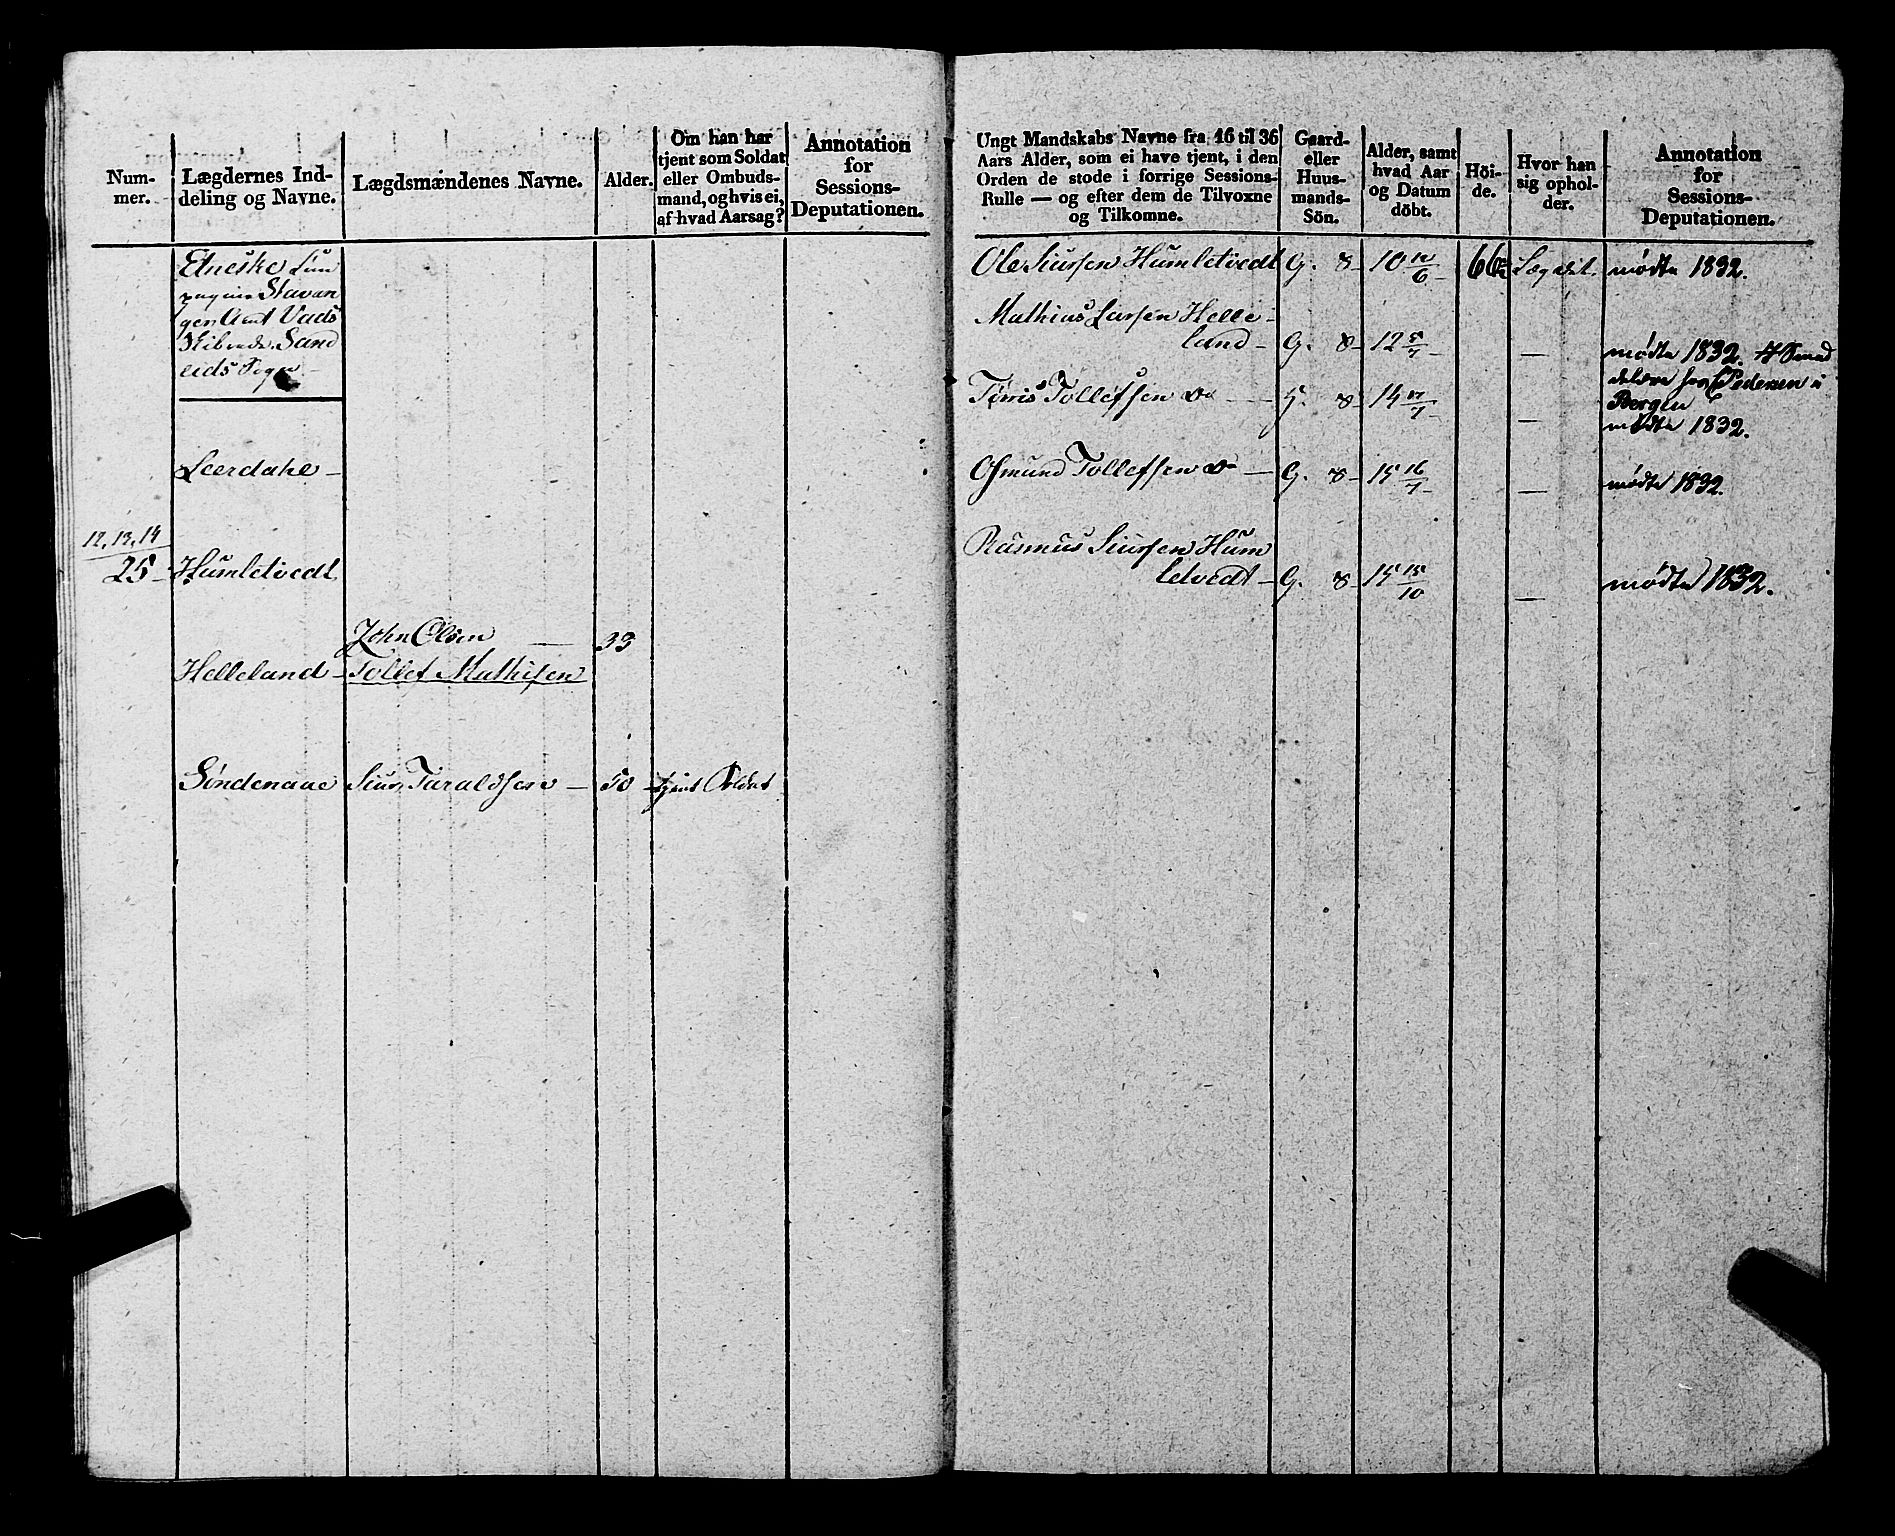 Num-
mer.
Lægdernes Ind-
deling og Navne.
Lægdsmændenes Navne.
Alder.
Om han har
tjent som Soldat
eller Ombuds-
mand, og hvis ei,
af hvad Aarsag?
Annotation
for
Sessions-
Deputationen.
Etneske Com
pagnie Stavan
ger Amt Vads
Skibrede. Sand
eids Sogn
Leerdahl
12, 13, 14
25 Humletvedt
John Olsen 33
Helleland Tollef Mathisen
Søndenaae Siur Taraldsen 50 tjent Soldat
Ungt Mandskabs Navne fra 16 til 36
Aars Alder, som ei have tjent, i den
Orden de stode i forrige Sessions-
Rulle — og efter dem de Tilvoxne
og Tilkomne.
Gaard-
eller
Huus-
mands-
Sön.
Alder, samt
hvad Aar
og Datum
döbt.
Höi-
de.
Hvor han
sig ophol-
der.
Annotation
for
Sessions-
Deputationen.
Ole Siursen Humletvedt G. 8 10 12/6 Lægdet. mødte 1832.
Mathias Larsen Helle-
land G. 8 12 5/7 — mødte 1832.
Tørris Tollefsen do G. 8 14 17/7 —
Pedersen i
Bergen
mødte 1832.
Osmund Tollefsen do G. 8 15 16/7 — mødte 1832.
Rasmus Siursen Hum
letvedt G. 8 15 15/10 — mødte 1832.